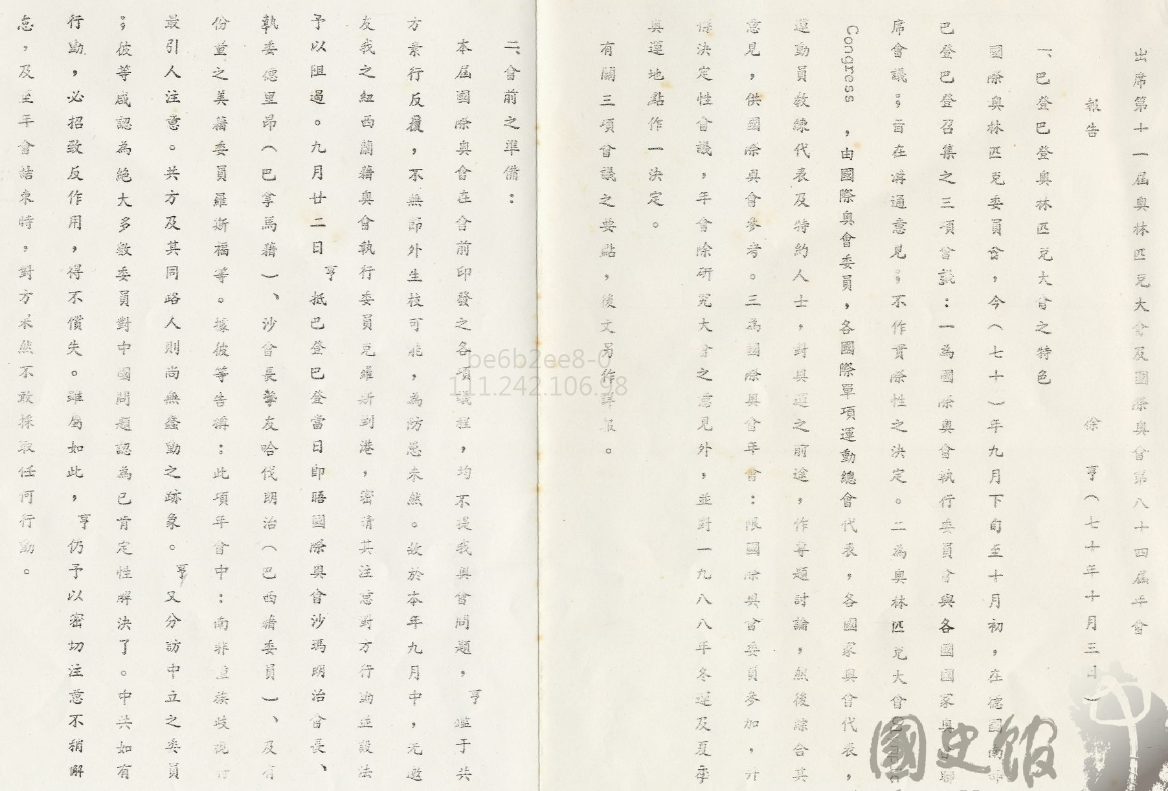 出席第十一屆奧林匹克大會及國際奧會第八十四屆年會
報告
徐　亨(七十年十月三日)
一、巴登巴登奧林匹克大會之特色
國際奧林匹克委員會,今(七十)年九月下旬至十月初,在德國西部
巴登巴登召集之三項會議:一為國際奧會執行委員會與各國國家奧會聯
席會議;旨在溝通意見;不作實際性之決定。二為奧林匹克大會
Congress ,由國際奧會委員,各國際單項運動總會代表,各國家奧會代表,
運動員教練代表及特約人士,對奧運之前途,作專題討論,然後綜合其
意見,供國際奧會參考。三為國際奧會年會:限國際奧會委員參加,亦
係決定性會議,年會除研究大會之意見外,並對一九八八年冬運及夏季
奧運地點作一決定。
有關三項會議之要點,後文另作詳報。
二、會前之準備:
本屆國際奧會在會前印發之各項議程,均不提我奧會問題,亨鑑于共
方素行反覆,不無節外生枝可能,為防患未然。故於本年九月中,先邀
友我之紐西蘭籍奧會執行委員克羅斯到港,密請其注意對方行動並設法
予以阻遏。九月廿二日亨抵巴登巴登當日即晤國際奧會沙瑪朗治會長、
執委德里昂(巴拿馬籍)、沙會長摯友哈伐朗治(巴西籍委員)、及有
份量之美籍委員羅斯福等。據彼等告稱:此項年會中:南非種族歧視
最引人注意。共方及其同路人則尚無蠢動之跡象。亨又分訪中立之委員
;彼等咸認為絕大多數委員對中國問題認為已肯定性解決了。中共如有
行動,必招致反作用,得不償失。雖屬如此,亨仍予以密切注意不稍懈
怠,及至年會結束時,對方果然不敢採取任何行動。
be6b2ee8-0
111.242.106.98
國史館